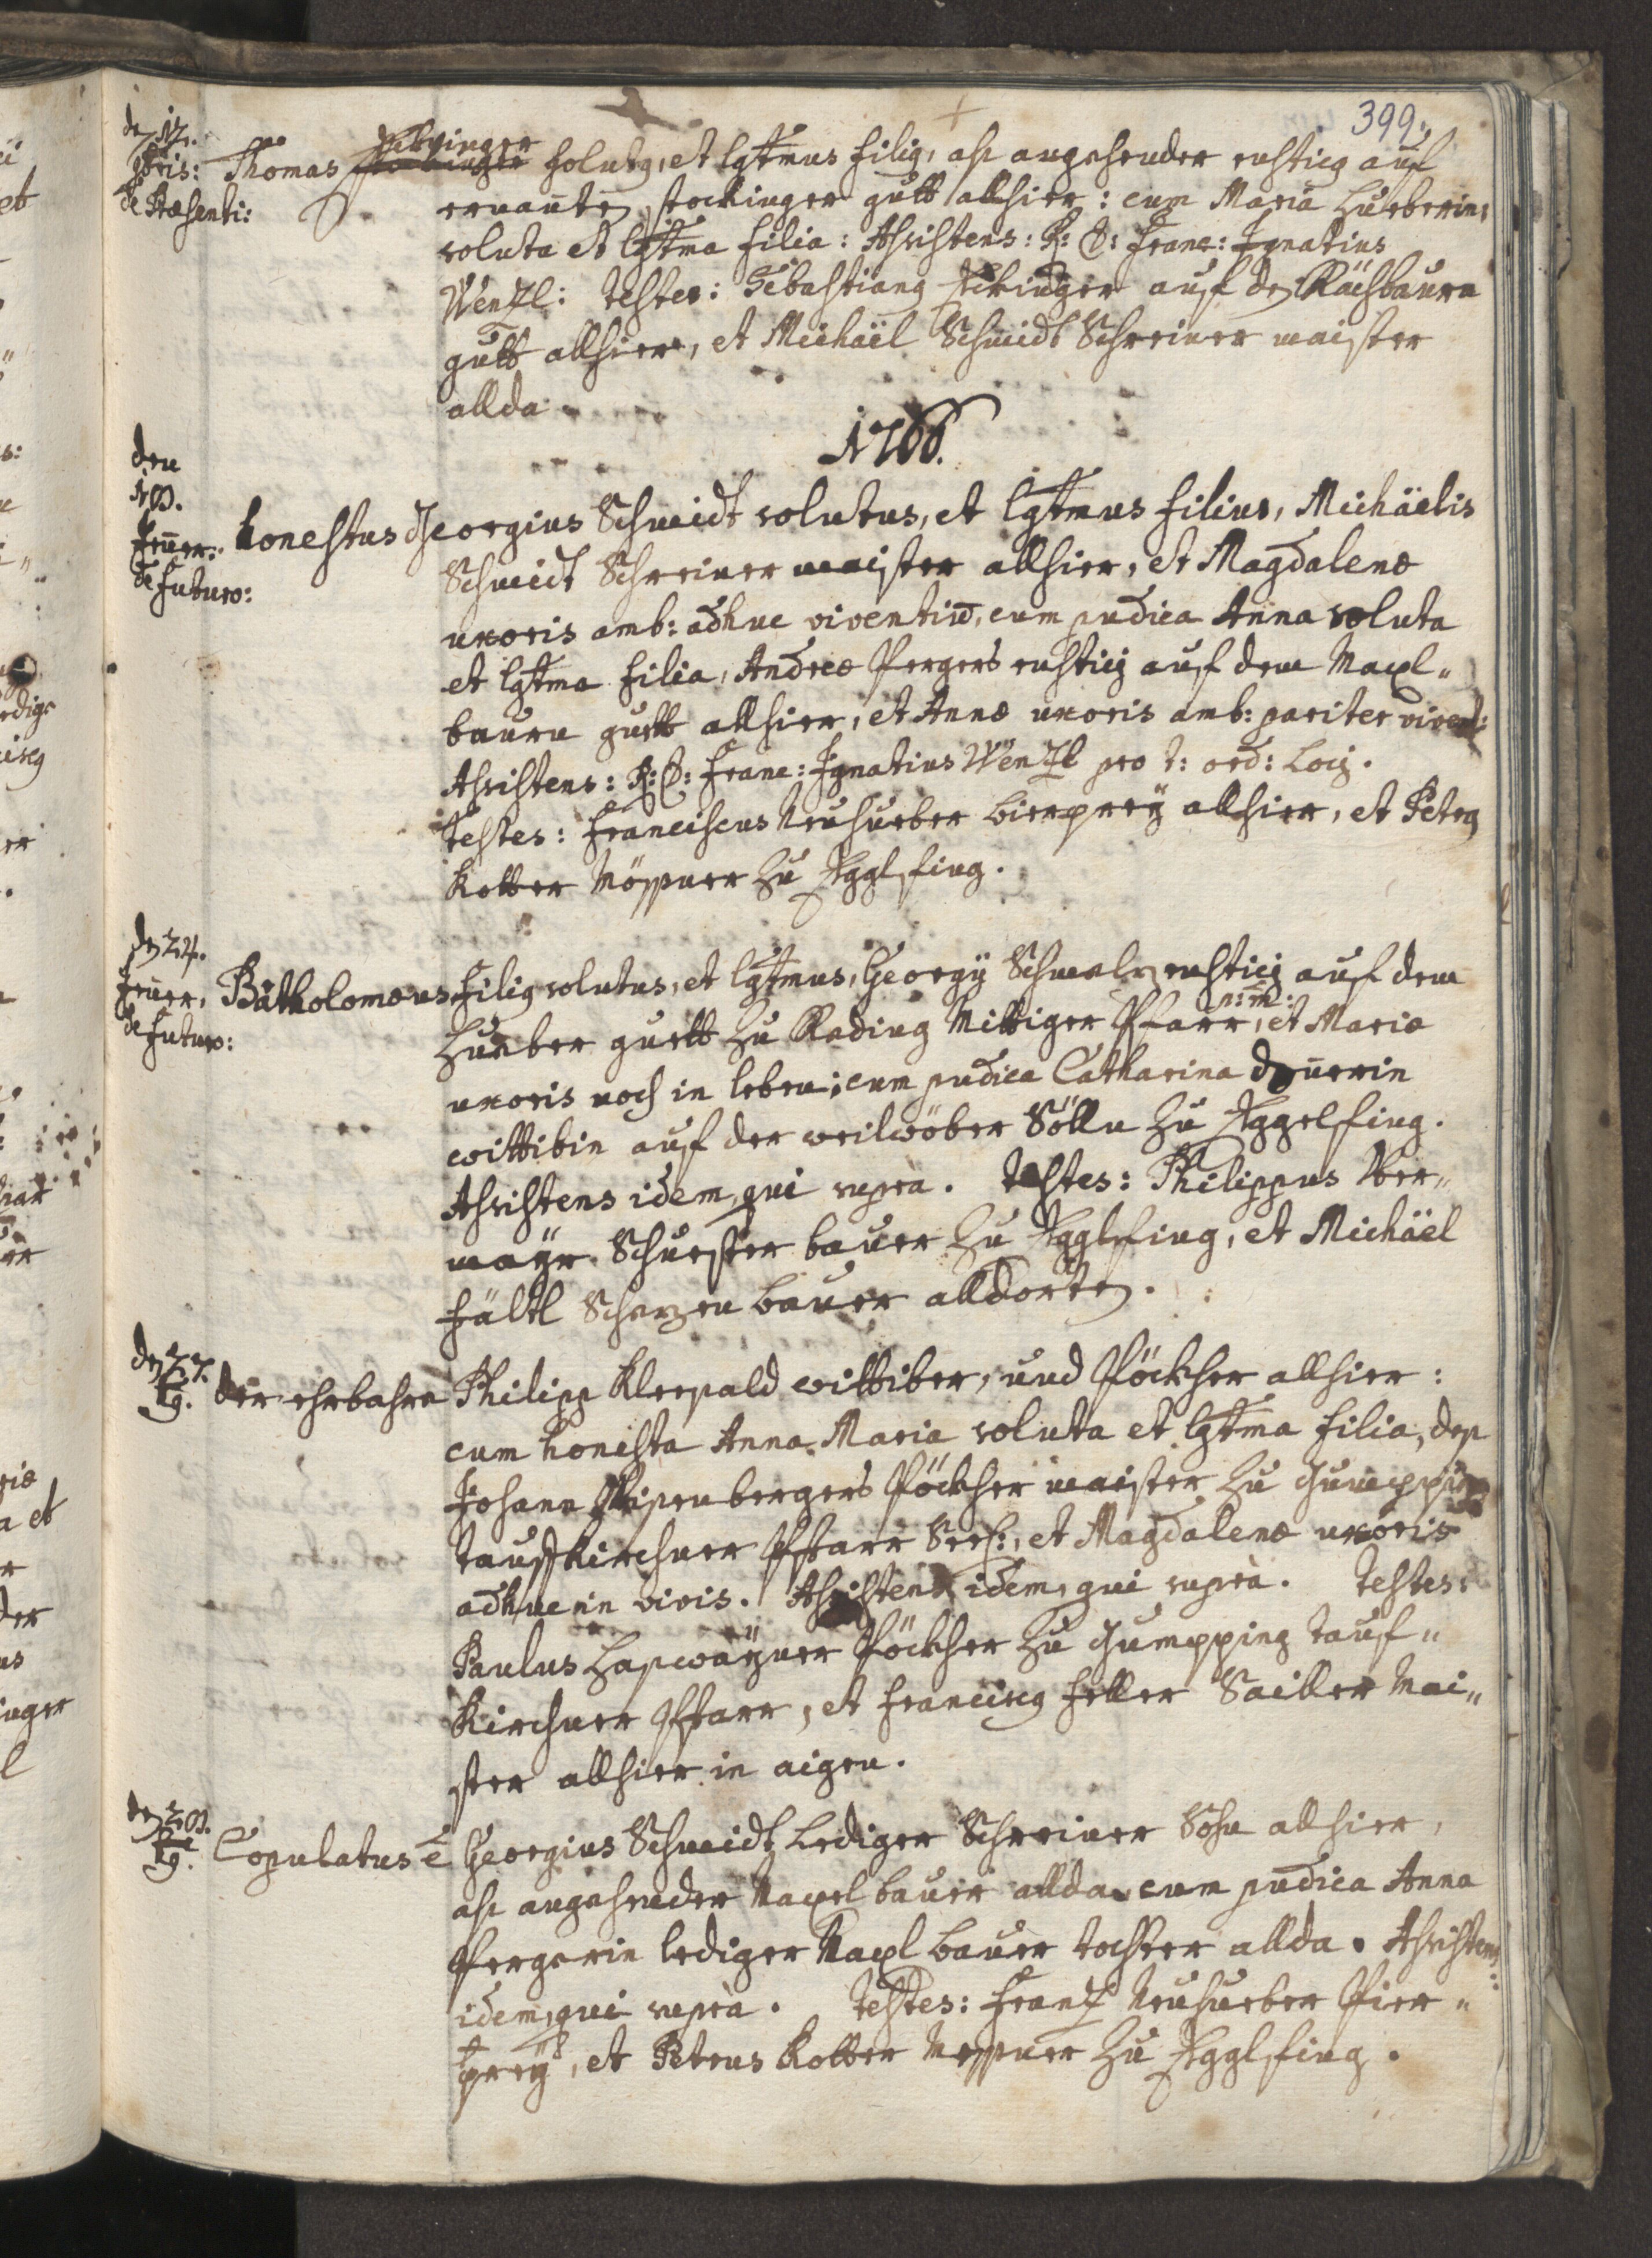 399.
den 17.
bris:
de Præsenti:
Thomas solutg, et lgtmus filig, als angehender rusticg auf
ernanten stockinger gutt allhier: cum Maria Hueberin,
soluta et lgtma filia: Assistens: R: D: Franc: Ignatius
Wenzl: testes: Sebastiang auf den Käsbaurn
gutt allhier, et Michäel Schmidt Schreiner maister
allda.
1766.
den
19.
Jenner:
de futuro:
honestus Georgius Schmidt solutus, et lgtmus filius, Michäelis
Schmidt Schreiner maister allhier, et Magdalenæ
uxoris amb: adhuc viventiū, cum pudica Anna soluta
et lgtma filia, Andreæ Pergers rusticj auf dem Maxl„
baurn guett allhier, et Annæ uxoris amb: pariter vivent:
Assistens: R: D: Franc: Ignatius Wenzl pro t: ord: Locj.
Testes: Franciscus Neuhueber bierpreÿ allhier, et Petrg
Kotter Mössner zu Agglfing.
den 24.
Jenner,
de futuro:
Bartholomæus filig solutus, et lgtmus, Georgÿ Schmalz rusticj auf dem
Hueber guett zu Rading Mittiger Pfarr, p:m: et Mariæ
uxoris noch in leben; cum pudica Catharina
wittibin auf der weilwöber Sölln zu Aggelfing.
Assistens idem, qui suprà. Testes: Philippus Ober„
mayr Schuester bauer zu Agglfing, et Michäel
Fältl bauer alldorten.
den 27.
Eg.
der ehrbahre Philipp Kleepald wittiber, und Pöckher allhier:
cum honesta Anna Maria soluta et lgtma filia, des
Johann Pöckher maister zu Gumpping
tauffkirchner Pfarr, et Magdalenæ uxoris
adhuc in vivis. Assistens idem, qui suprà. Testes:
Paulus Pöckher zu Gumpping tauf„
kirchner Pfarr, et Franciscg Feller Sailler Mai„
ster allhier in aigen.
den 29.
Eg.
Copulatus ē Georgius Schmidt lediger Schreiner Sohn allhier,
als angehender Maxel bauer allda cum pudica Anna
Pergerin lediger Maxl bauer tochter allda. Assistens
idem, qui suprà. Testes: Franz Neuhueber Pier„
preÿ, et Petrus Kotter Messner zu Agglfing.